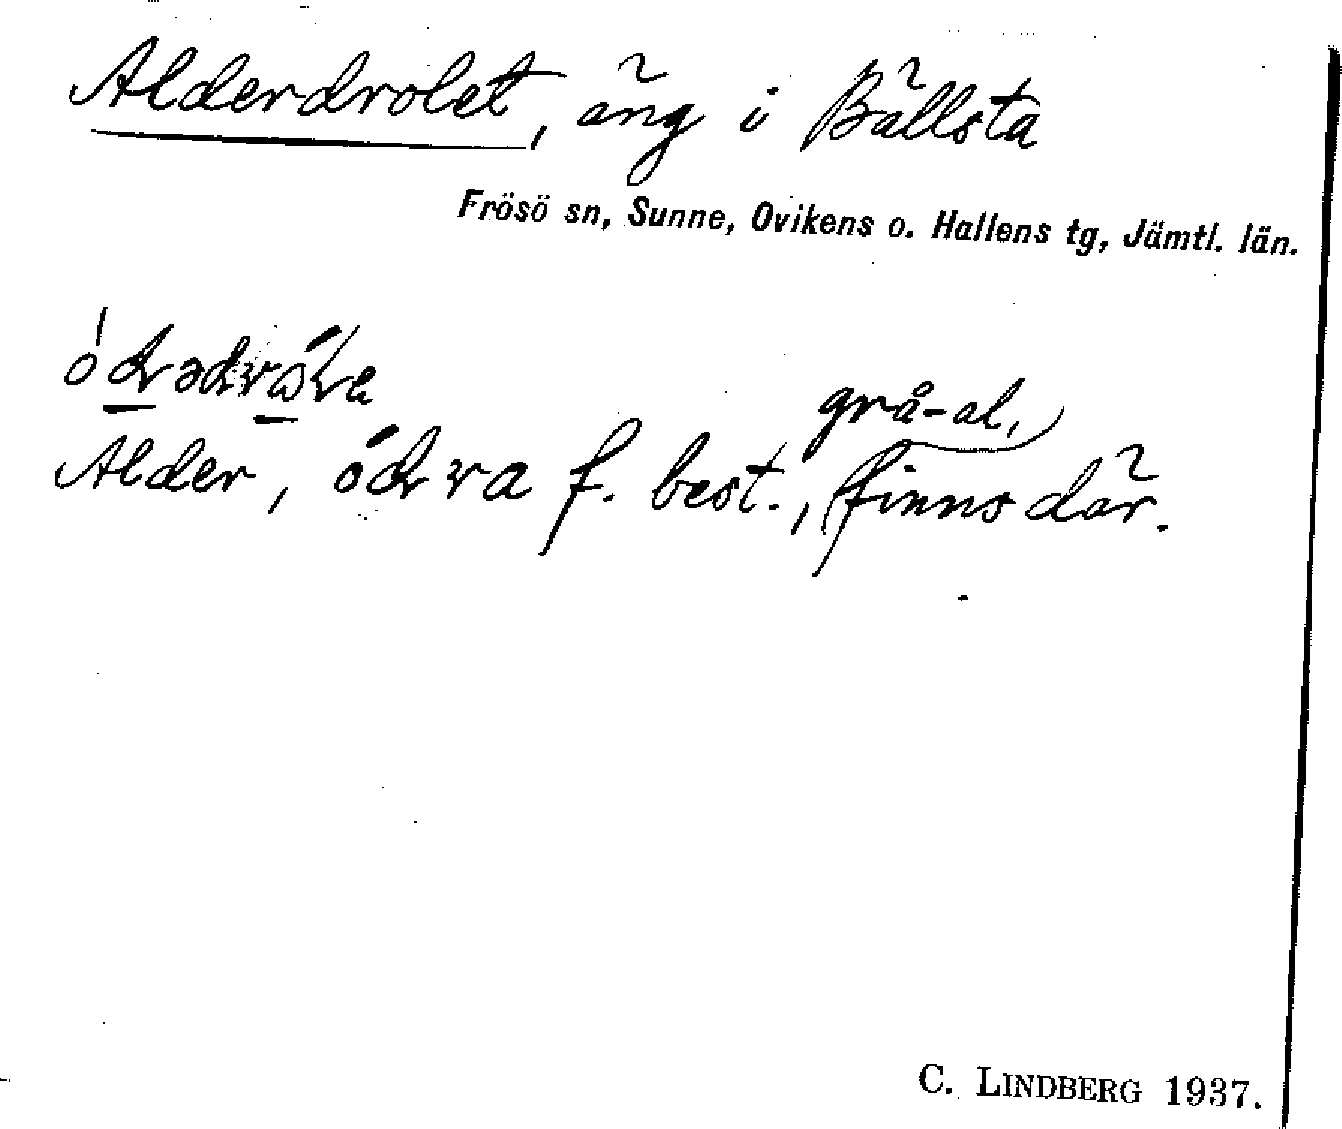 Alderdrolet, äng i Bällsta
Frösö sn, Sunne, Ovikens o. Hallens tg, Jämtl. län.
grå-al,
Alder, f. best., finns där.
C. LINDBERG 1937.